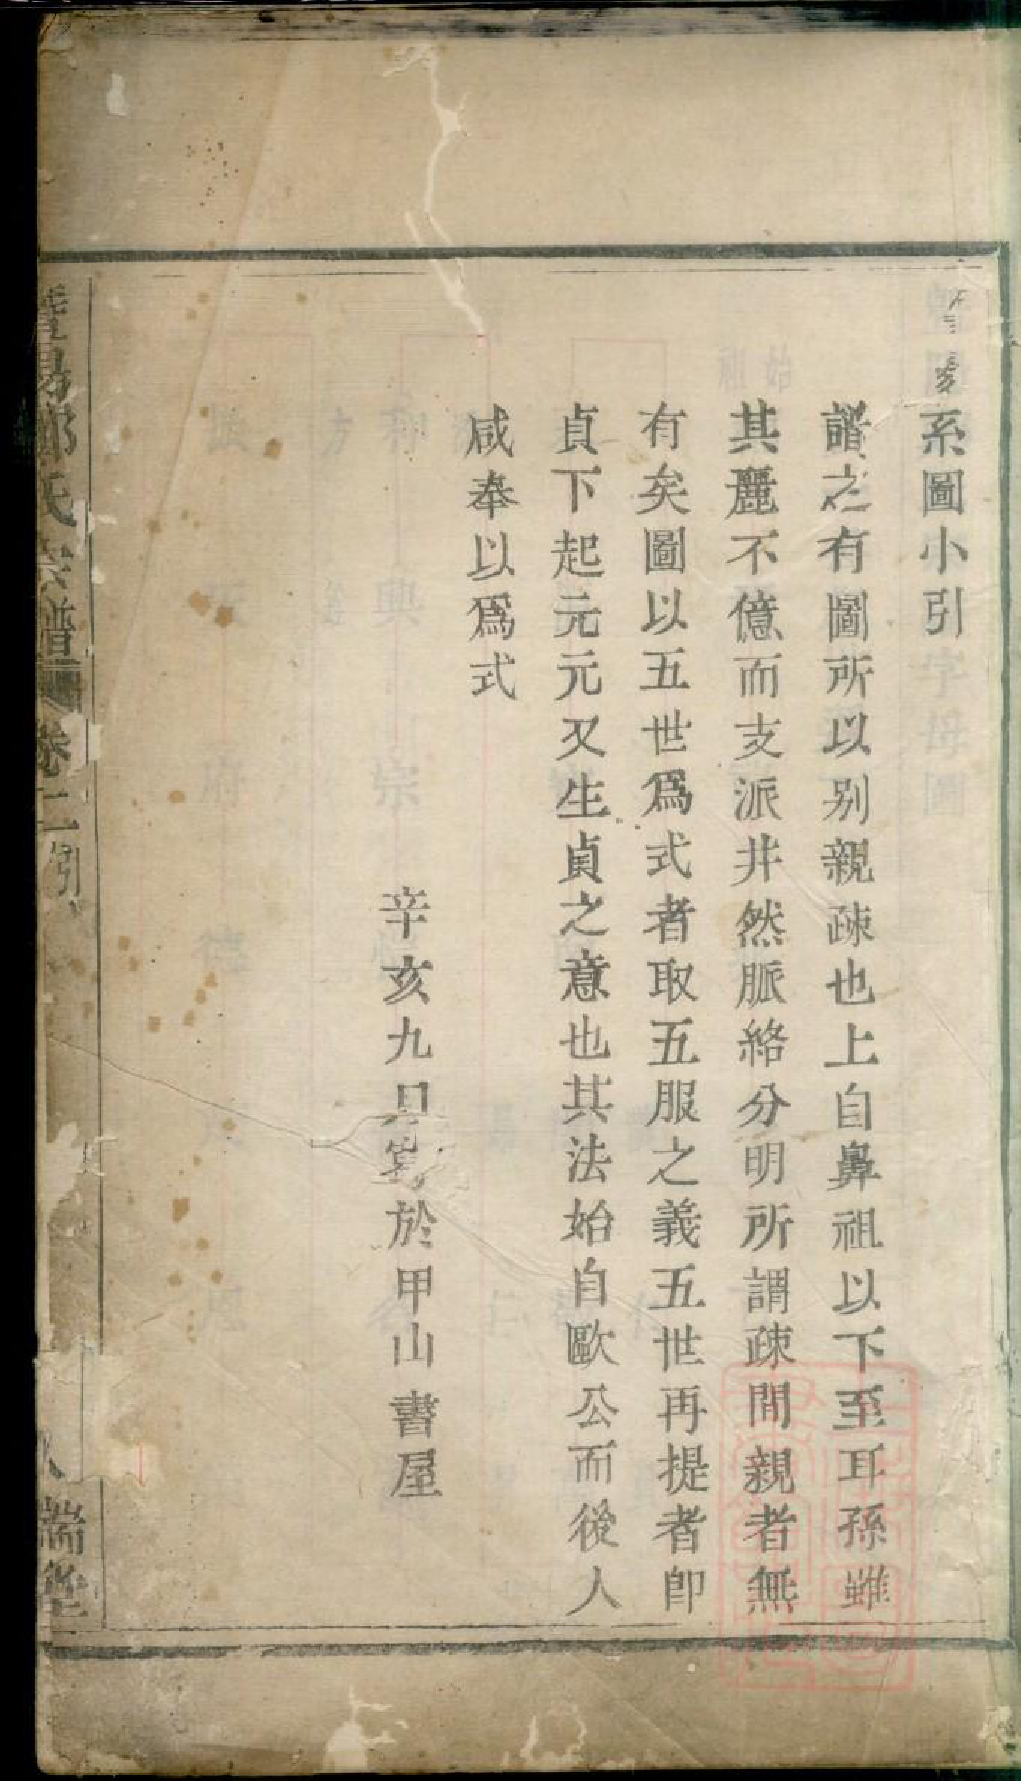 系圖小引
譜之有圖所以别親疎也上自鼻祖以下至耳孫雖
其麗不億而支派井然脈絡分明所謂疎間親者無
有矣圖以五世爲式者取五服之義五世再提者卽
貞下起元元又生貞之意也其法始自歐公而後人
咸奉以爲式
辛亥九月 於甲山書屋
氏宗譜 卷二 引